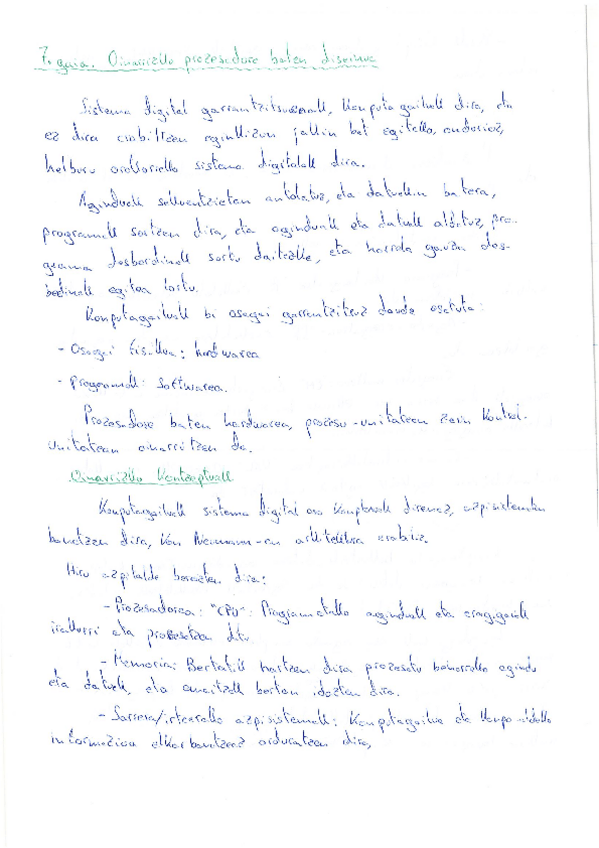 7. gaia. Oinarrizko prozesadore baten diseinua
Sistema digital garrantzitsuenak, konputagailuak dira, eta
ez dira erabiltzen eginkizun jakin bat egiteko, ondorioz,
helburu orokorreko sistema digitalak dira.
Aginduak sekuentzietan antolatuz, eta datuekin batera,
programak sortzen dira, eta aginduak eta datuak aldatuz, pro-
grama desberdinak sortu daitezke, eta horrela gauza des-
berdinak egitea lortu.
Konputagailuak bi osagai garrantzitsuz daude osatuta:
- Osagai fisikoa: hardwarea
- Programak: Softwarea.
Prozesadore baten hardwarea, prozesu-unitatean zein kontrol-
unitatean oinarritzen da.
Oinarrizko kontzeptuak
Konputagailuak sistema digital oso konplexuak direnez, azpisistematan
banatzen dira, Von Neumann-en arkitektura erabiliz.
Hiru azpitalde bereizten dira:
- Prozesadorea: "CPU": Programetako aginduak eta eragigaiak
irakurri eta prozesatzen ditu.
- Memoria: Bertatik hartzen dira prozesatu beharreko agindu
eta datuak, eta emaitzak bertan idazten dira.
- Sarrera/irteerako azpisistemak: Konputagailua eta kanpo aldeko
informazioa elkarbanatzeaz arduratzen dira,